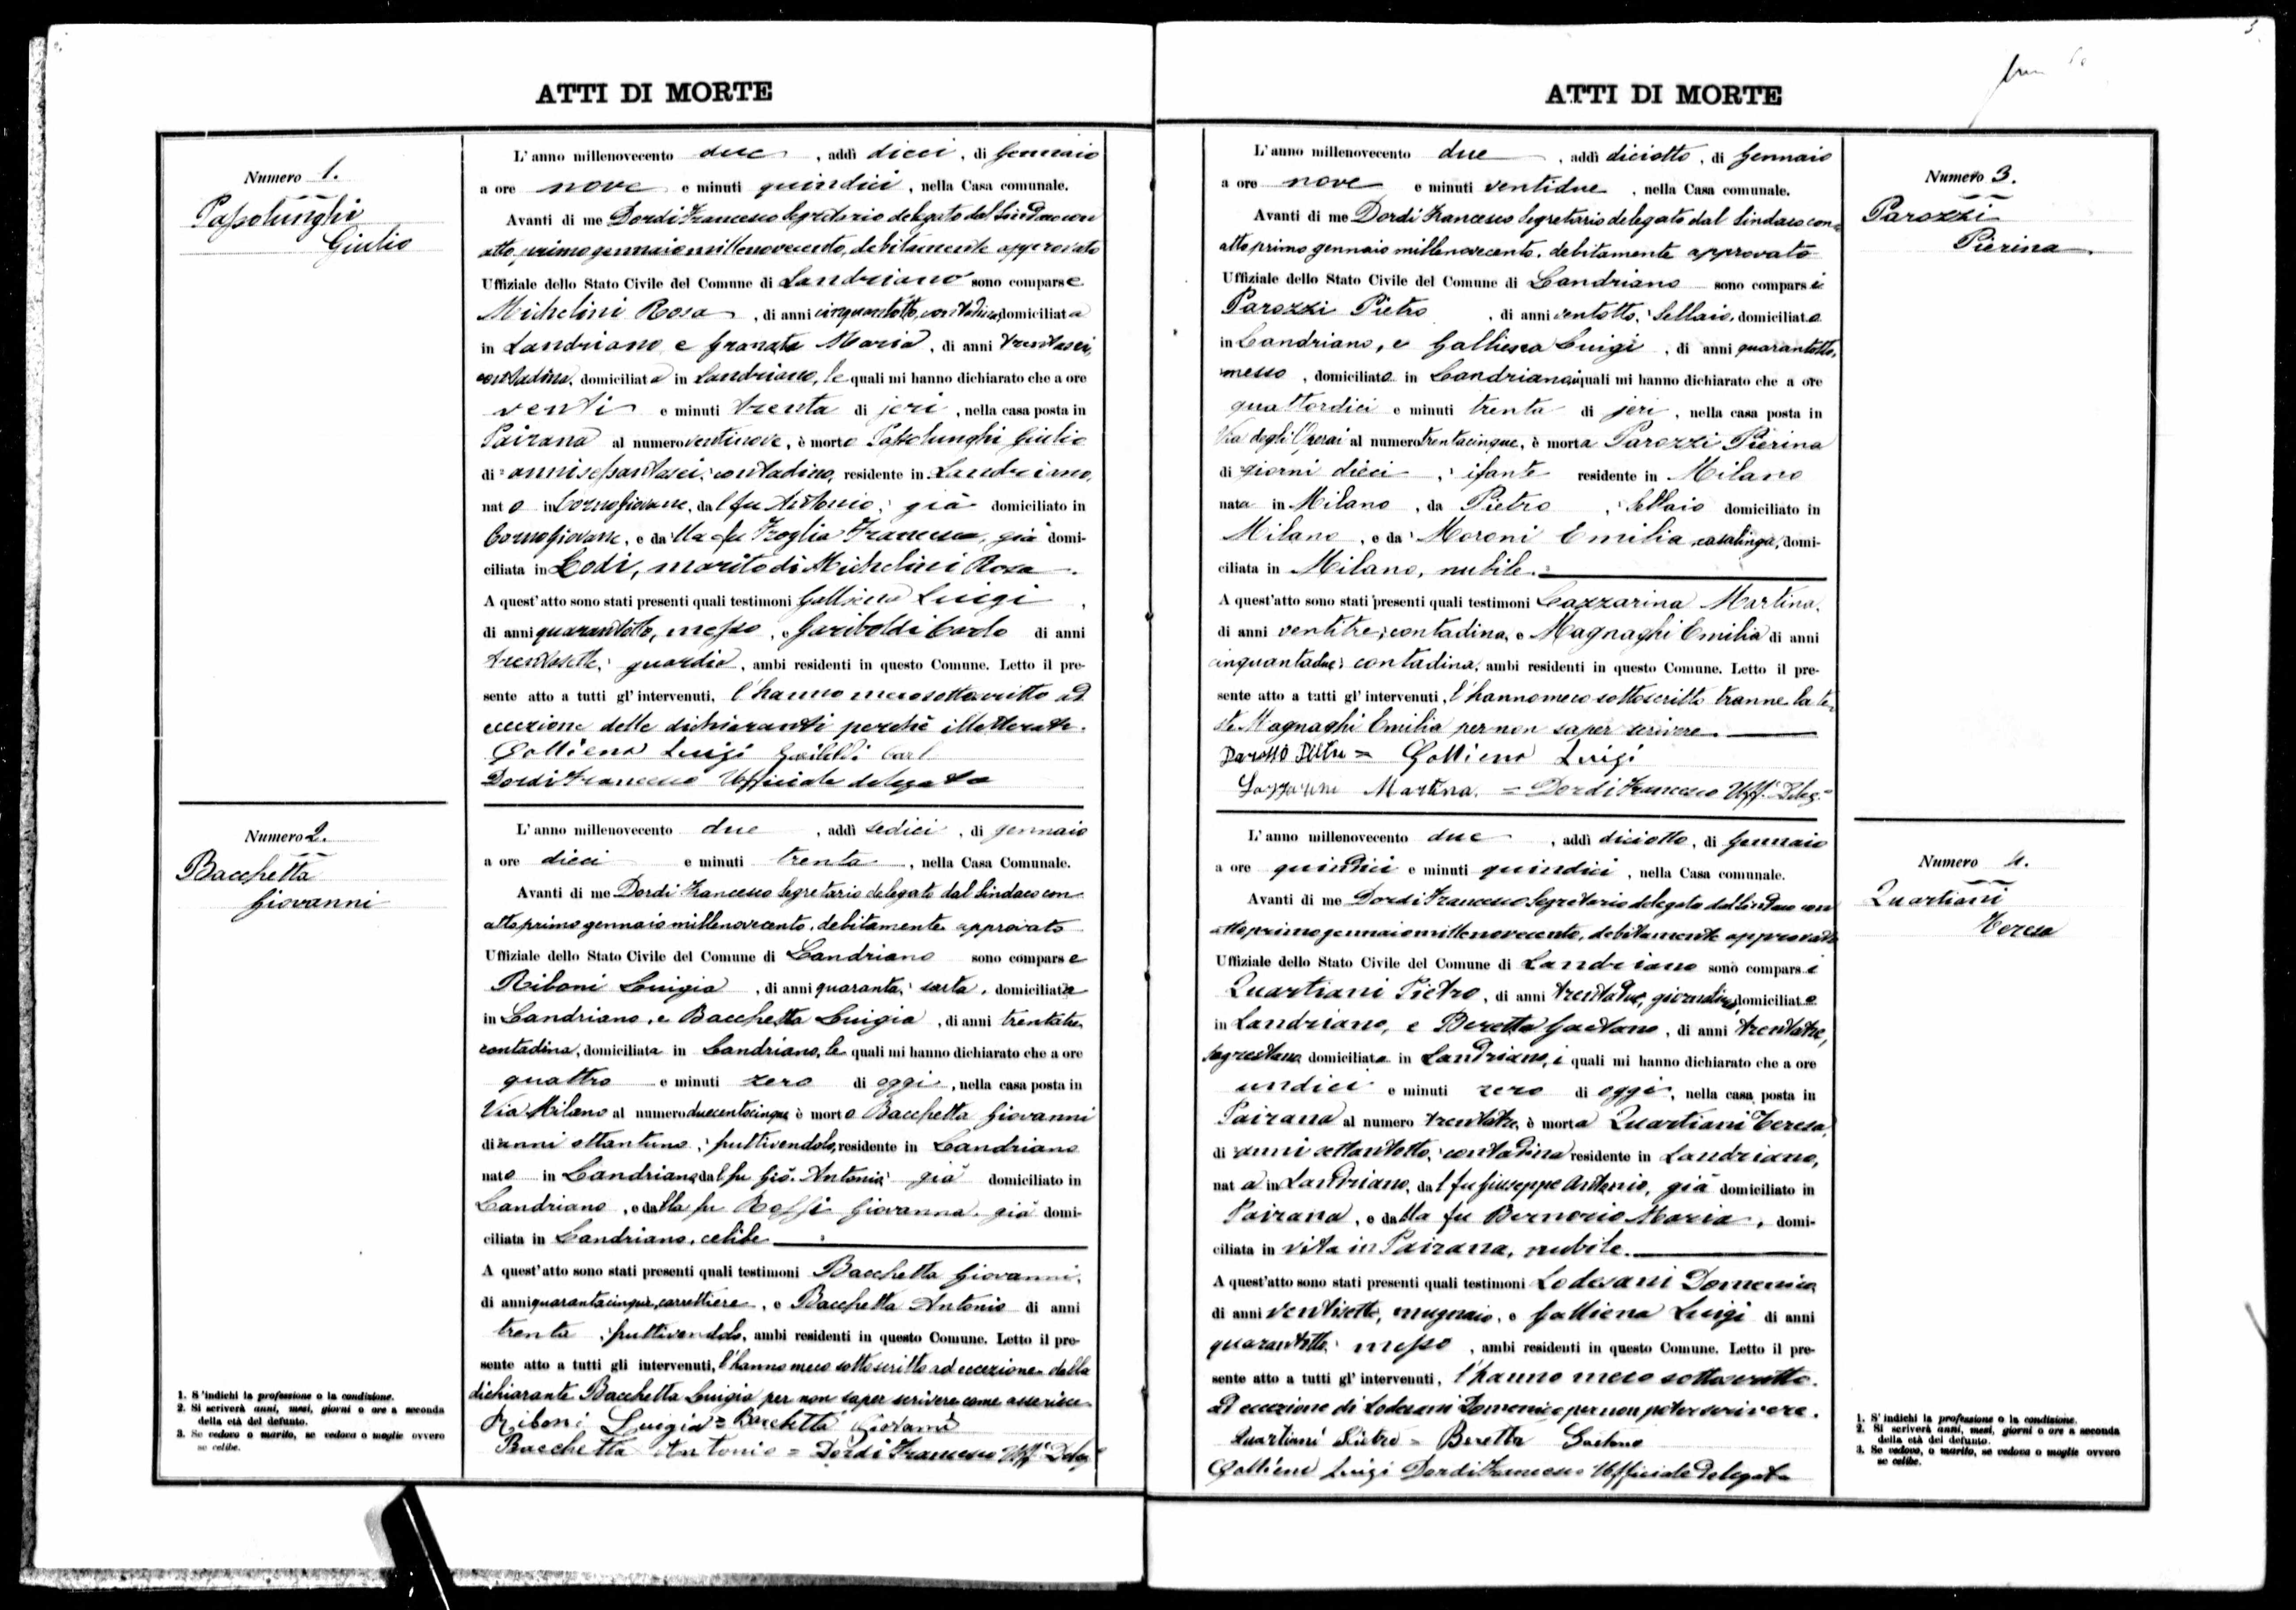 ATTI DI MORTE
Numero 1.
Passolunghi
Giulio
L'anno millenovecento due, addì dieci, di Gennaio
a ore nove e minuti quindici, nella Casa comunale.
Avanti di me Dordi Francesco Segretario delegato dal Sindaco con
atto primo gennaio millenovecento, debitamente approvato
Uffiziale dello Stato Civile del Comune di Landriano sono comparse
Michelini Rosa, di anni cinquantotto, contadina, domiciliata
in Landriano e Granata Maria, di anni trentasei,
contadina, domiciliata in Landriano, le quali mi hanno dichiarato che a ore
venti e minuti trenta di jeri, nella casa posta in
Pairana al numero ventinove, è morto Passolunghi Giulio
di anni sessantasei, contadino, residente in Landriano,
nato in Cornogiovane, dal fu Antonio, già domiciliato in
Cornogiovane, e dalla fu Troglia Francesca, già domi-
ciliata in Lodi, marito di Michelini Rosa
A quest'atto sono stati presenti quali testimoni Galliena Luigi,
di anni quarantotto, messo, e Gariboldi Carlo di anni
trentasette, guardia, ambi residenti in questo Comune. Letto il pre-
sente atto a tutti gl'intervenuti, l'hanno meco sottoscritto ad
eccezione delle dichiaranti perchè illetterate.
Galliena Luigi Gariboldi Carl
Dordi Francesco Ufficiale delegato
Numero 2.
Bacchetta
Giovanni
L'anno millenovecento due, addì sedici, di gennaio
a ore dieci e minuti trenta, nella Casa Comunale.
Avanti di me Dordi Francesco Segretario delegato dal Sindaco con
atto primo gennaio millenovecento, debitamente approvato
Uffiziale dello Stato Civile del Comune di Landriano sono comparse
Riboni Luigia, di anni quaranta, sarta, domiciliata
in Landriano, e Bacchetta Luigia, di anni trentatre
contadina, domiciliata in Landriano, le quali mi hanno dichiarato che a ore
quattro e minuti zero di oggi, nella casa posta in
Via Milano al numero duecentocinque è morto Bacchetta Giovanni
di anni ottantuno, fruttivendolo, residente in Landriano
nato in Landriano, dal fu Gio. Antonio già domiciliato in
Landriano, e dalla fu Rossi Giovanna già domi-
ciliata in Landriano, celibe
A quest'atto sono stati presenti quali testimoni Bacchetta Giovanni,
di anni quarantacinque, carrettiere, e Bacchetta Antonio di anni
trenta, fruttivendolo, ambi residenti in questo Comune. Letto il pre-
sente atto a tutti gli intervenuti, l'hanno meco sottoscritto ad eccezione della
dichiarante Bacchetta Luigia per non saper scrivere come asserisce
Riboni Luigia = Bacchetta Giovanni
Bacchetta Antonio = Dordi Francesco Uff. Deleg.
1. S'indichi la professione o la condizione.
2. Si scriverà anni, mesi, giorni o ore a seconda
della età del defunto.
3. Se vedovo o marito, se vedova o moglie ovvero
se celibe.
ATTI DI MORTE
L'anno millenovecento due, addì diciotto, di Gennaio
a ore nove e minuti ventidue, nella Casa comunale.
Avanti di me Dordi Francesco Segretario delegato dal Sindaco con
atto primo gennaio millenovecento, debitamente approvato
Uffiziale dello Stato Civile del Comune di Landriano sono comparsi
Parozzi Pietro, di anni ventotto, Sellaio, domiciliato
in Landriano, e Galliena Luigi, di anni quarantotto,
messo, domiciliato in Landriano, i quali mi hanno dichiarato che a ore
quattordici e minuti trenta di jeri, nella casa posta in
Via degli Operai al numero trentacinque, è morta Parozzi Pierina
di giorni dieci, ifante residente in Milano
nata in Milano, da Pietro, Sellaio domiciliato in
Milano, e da Moroni Emilia, casalinga, domi-
ciliata in Milano, nubile.
A quest'atto sono stati presenti quali testimoni Lazzarina Martina,
di anni ventitre, contadina, e Magnaghi Emilia di anni
cinquantadue, contadina, ambi residenti in questo Comune. Letto il pre-
sente atto a tutti gl'intervenuti, l'hanno meco sottoscritto tranne la te-
ste Magnaghi Emilia per non saper scrivere.
Parozzi Pietro = Galliena Luigi
Lazzarini Martina. = Dordi Francesco Uff. Deleg.
Numero 3.
Parozzi
Pierina
L'anno millenovecento due, addì diciotto, di Gennaio
a ore quindici e minuti quindici, nella Casa comunale.
Avanti di me Dordi Francesco Segretario delegato dal Sindaco con
atto primo gennaio millenovecento, debitamente approvato
Uffiziale dello Stato Civile del Comune di Landriano sono comparsi
Quartiani Pietro, di anni trentadue, giornaliero, domiciliato
in Landriano, e Beretta Gaetano, di anni trentatre,
sagrestano, domiciliato in Landriano, i quali mi hanno dichiarato che a ore
undici e minuti zero di oggi, nella casa posta in
Pairana al numero trentatre, è morta Quartiani Teresa,
di anni settantotto, contadina residente in Landriano,
nata in Landriano, dal fu Giuseppe Antonio, già domiciliato in
Pairana, e dalla fu Bernorio Maria, domi-
ciliata in vita in Pairana, nubile.
A quest'atto sono stati presenti quali testimoni Lodesani Domenico,
di anni ventisette, mugnaio, e Galliena Luigi di anni
quarantotto, messo, ambi residenti in questo Comune. Letto il pre-
sente atto a tutti gl'intervenuti, l'hanno meco sottoscritto.
Ad eccezione di Lodesani Domenico per non poter scrivere.
Quartiani Pietro = Beretta Gaetano
Galliena Luigi Dordi Francesco Ufficiale Delegato
Numero 4.
Quartiani
Teresa
1. S'indichi la professione o la condizione.
2. Si scriverà anni, mesi, giorni o ore a seconda
della età del defunto.
3. Se vedovo, o marito, se vedova o moglie ovvero
se celibe.